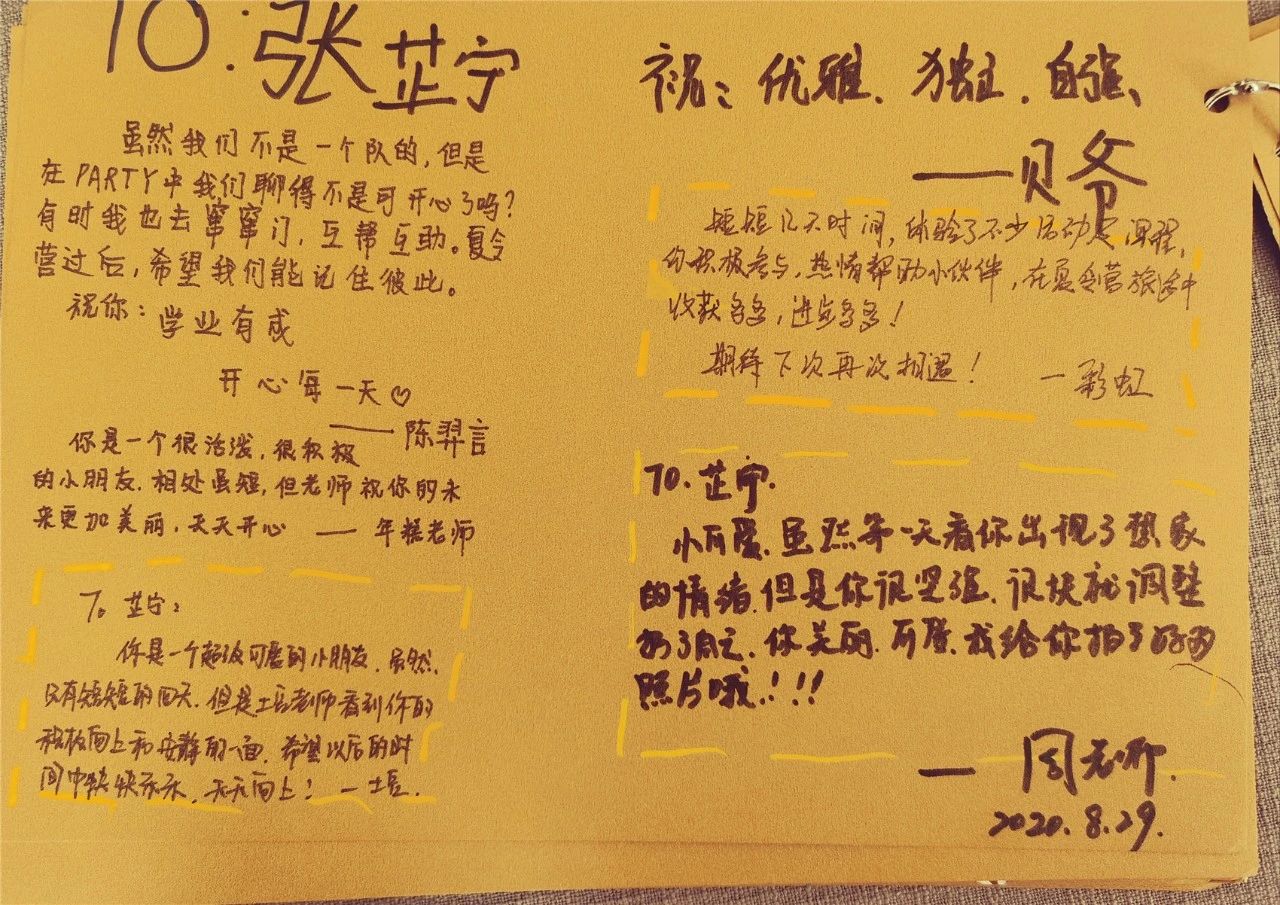 TO:张芷宁
虽然我们不是一个队的,但是
在PARTY中我们聊得不是可开心了吗?
有时我也去窜窜门,互帮互助。夏令
营过后,希望我们能记住彼此。
祝你:学业有成
开心每一天♡
——陈羿言
你是一个很活泼,很积极
的小朋友.相处虽短,但老师祝你的未
来更加美丽,天天开心 —— 年糕老师
To 芷宁:
你是一个超级可爱的小朋友.虽然,
只有短短的四天.但是土豆老师看到你的
积极向上和安静的一面.希望以后的时
间中快快乐乐,天天向上! —土豆.
祝:优雅.独立.自强、
——贝爷
短短几天时间,体验了不少活动和课程,
你积极参与,热情帮助小伙伴,在夏令营旅途中
收获多多,进步多多!
期待下次再次相遇! —彩虹
TO.芷宁.
小可爱.虽然第一天看你出现了想家
的情绪.但是你很坚强.很快就调整
好了自己.你美丽.可爱.我给你拍了好多
照片哦.!!!
— 周老师.
2020.8.29.